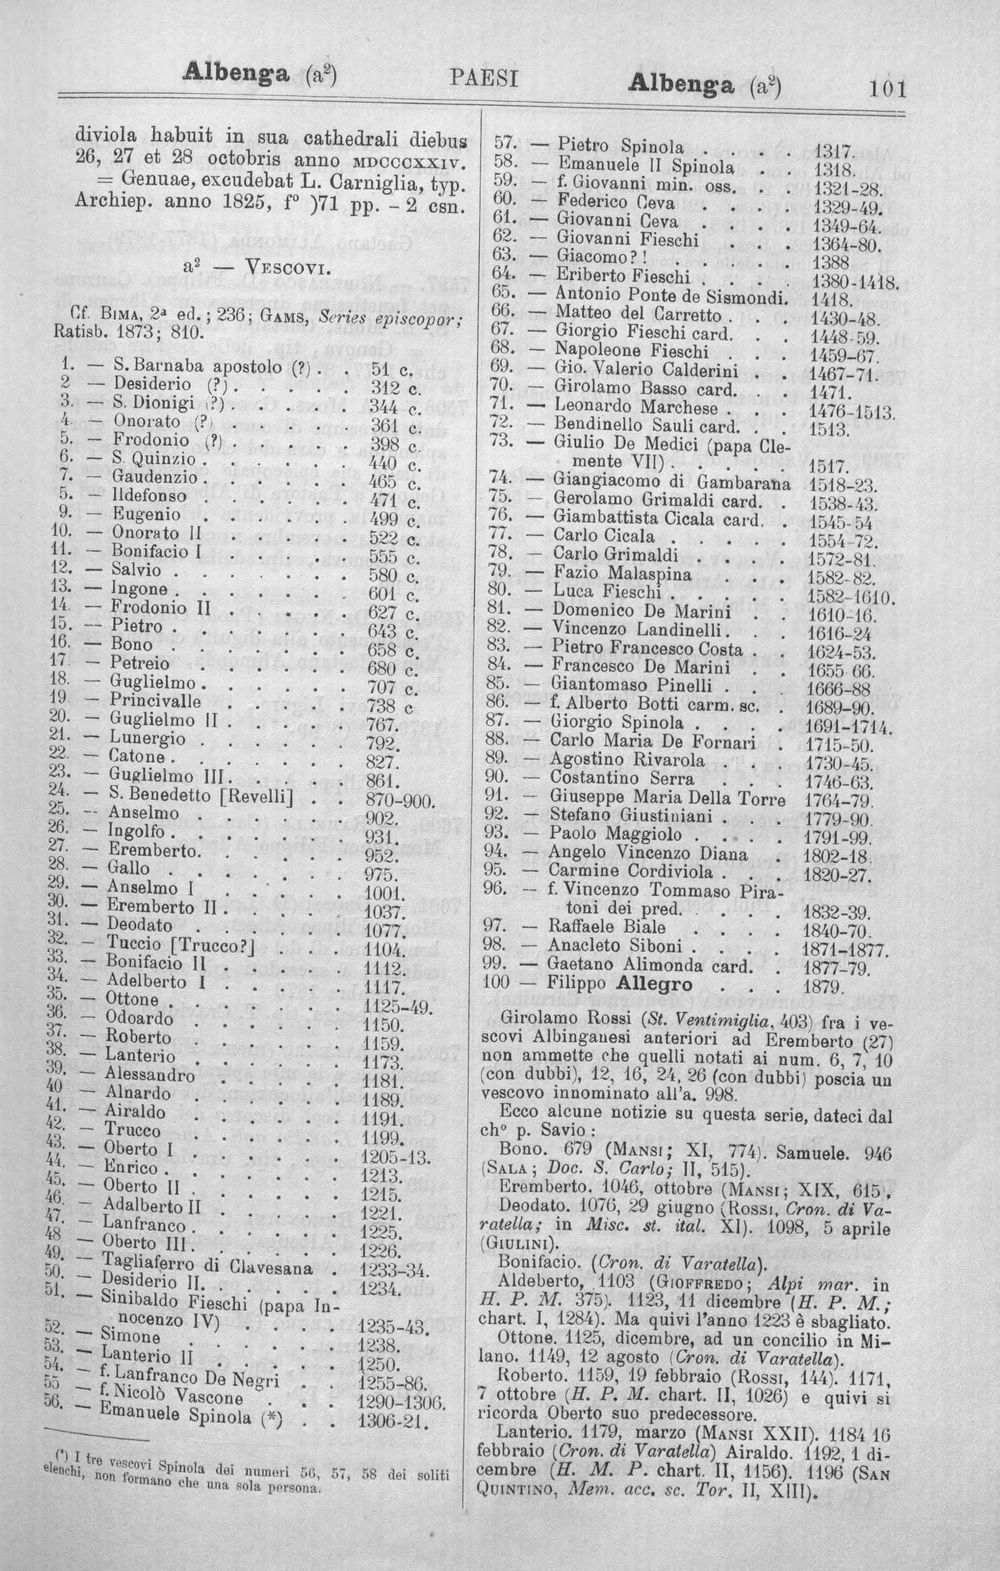 Albenga (a²) PAESI Albenga (a²) 101
diviola habuit in sua cathedrali diebus
26, 27 et 28 octobris anno MDCCCXXIV.
= Genuae, excudebat L. Carniglia, typ.
Archiep. anno 1825, f° )71 pp. – 2 csn.
a² — VESCOVI.
Cf. BIMA, 2ª ed.; 236; GAMS, Series episcopor;
Ratisb. 1873; 810.
1. — S. Barnaba apostolo (?) . . 51 c.
2 — Desiderio (?) . . . . . 312 c.
3. — S. Dionigi (?) . . . . . 344 c.
4. — Onorato (?) . . . . . 361 c.
5. — Frodonio (?) . . . . . 398 c.
6. — S. Quinzio . . . . . . 440 c.
7. — Gaudenzio . . . . . . 465 c.
5. — Ildefonso . . . . . . 471 c.
9. — Eugenio . . . . . . 499 c.
10. — Onorato II . . . . . 522 c.
11. — Bonifacio I . . . . . 555 c.
12. — Salvio . . . . . . . 580 c.
13. — Ingone . . . . . . . 601 c.
14. — Frodonio II . . . . . 627 c.
15. — Pietro . . . . . . . 643 c.
16. — Bono . . . . . . . 658 c.
17. — Petreio . . . . . . 680 c.
18. — Guglielmo . . . . . . 707 c.
19. — Princivalle . . . . . 738 c
20. — Guglielmo II . . . . . 767.
21. — Lunergio . . . . . . 792.
22. — Catone . . . . . . . 827.
23. — Guglielmo III . . . . . 861.
24. — S. Benedetto [Revelli] . . 870–900.
25. — Anselmo . . . . . . 902.
26. — Ingolfo . . . . . . . 931.
27. — Eremberto . . . . . . 952.
28. — Gallo . . . . . . . 975.
29. — Anselmo I . . . . . 1001.
30. — Eremberto II . . . . . 1037.
31. — Deodato . . . . . . 1077.
32. — Tuccio [Trucco?] . . . . 1104.
33. — Bonifacio II . . . . . 1112.
34. — Adelberto I . . . . . 1117.
35. — Ottone . . . . . . . 1125-49.
36. — Odoardo . . . . . . 1150.
37. — Roberto . . . . . . 1159.
38. — Lanterio . . . . . . 1173.
39. — Alessandro . . . . . 1181.
40 — Alnardo . . . . . . 1189.
41. — Airaldo . . . . . . 1191.
42. — Trucco . . . . . . 1199.
43. — Oberto I . . . . . . 1205-13.
44. — Enrico . . . . . . . 1213.
45. — Oberto II . . . . . . 1215.
46. — Adalberto II . . . . . 1221.
47. — Lanfranco . . . . . . 1225.
48 — Oberto III . . . . . . 1226.
49. — Tagliaferro di Clavesana . 1233–34.
50. — Desiderio II. . . . . . 1234.
51. — Sinibaldo Fieschi (papa In-
nocenzo IV) . . . . 1235-43.
52. — Simone . . . . . . 1238.
53. — Lanterio II . . . . . 1250.
54. — f. Lanfranco De Negri . . 1255–86.
55 — f. Nicolò Vascone . . . 1290-1306.
56. — Emanuele Spinola (*) . . 1306-21.
(*) I tre vescovi Spinola dei numeri 56, 57, 58 dei soliti
elenchi, non formano che una sola persona.
57. — Pietro Spinola . . . . 1317.
58. — Emanuele II Spinola . . 1318.
59. — f. Giovanni min. oss. . . 1321-28.
60. — Federico Ceva . . . . 1329-49.
61. — Giovanni Ceva . . . . 1349-64.
62. — Giovanni Fieschi . . . 1364-80.
63. — Giacomo?! . . . . . 1388
64. — Eriberto Fieschi . . . . 1380-1418.
65. — Antonio Ponte de Sismondi. 1418.
66. — Matteo del Carretto . . . 1430-48.
67. — Giorgio Fieschi card. . . 1448-59.
68. — Napoleone Fieschi . . . 1459–67.
69. — Gio. Valerio Calderini . . 1467-71.
70. — Girolamo Basso card. . . 1471.
71. — Leonardo Marchese . . . 1476-1513.
72. — Bendinello Sauli card. . . 1513.
73. — Giulio De Medici (papa Cle-
mente VII) . . . . . 1517.
74. — Giangiacomo di Gambarana 1518–23.
75. — Gerolamo Grimaldi card. . 1538-43.
76. — Giambattista Cicala card. . 1545-54
77. — Carlo Cicala . . . . . 1554-72.
78. — Carlo Grimaldi . . . . 1572-81.
79. — Fazio Malaspina . . . 1582-82.
80. — Luca Fieschi . . . . . 1582-1610.
81. — Domenico De Marini . . 1610-16.
82. — Vincenzo Landinelli. . . 1616-24
83. — Pietro Francesco Costa . . 1624-53.
84. — Francesco De Marini . . 1655 66.
85. — Giantomaso Pinelli . . . 1666-88
86. — f. Alberto Botti carm. sc. . 1689-90.
87. — Giorgio Spinola . . . . 1691-1714.
88. — Carlo Maria De Fornari . 1715-50.
89. — Agostino Rivarola . . . 1730-45.
90. — Costantino Serra . . . 1746-63.
91. — Giuseppe Maria Della Torre 1764–79.
92. — Stefano Giustiniani . . . 1779-90.
93. — Paolo Maggiolo . . . . 1791-99.
94. — Angelo Vincenzo Diana . 1802-18.
95. — Carmine Cordiviola . . . 1820-27.
96. — f. Vincenzo Tommaso Pira-
toni dei pred. . . . . 1832-39.
97. — Raffaele Biale . . . . 1840-70.
98. — Anacleto Siboni . . . . 1871-1877.
99. — Gaetano Alimonda card. . 1877-79.
100 — Filippo Allegro . . . 1879.
Girolamo Rossi (St. Ventimiglia, 403) fra i ve-
scovi Albinganesi anteriori ad Eremberto (27)
non ammette che quelli notati ai num. 6, 7, 10
(con dubbi), 12, 16, 24, 26 (con dubbi) poscia un
vescovo innominato all'a. 998.
Ecco alcune notizie su questa serie, dateci dal
ch° p. Savio :
Bono. 679 (MANSI; XI, 774). Samuele. 946
(SALA; Doc. S. Carlo; II, 515).
Eremberto. 1046, ottobre (MANSI; XIX, 615).
Deodato. 1076, 29 giugno (ROSSI, Cron. di Va-
ratella; in Misc. st. ital. XI). 1098, 5 aprile
(GIULINI).
Bonifacio. (Cron. di Varatella).
Aldeberto, 1103 (GIOFFREDO; Alpi mar. in
H. P. M. 375). 1123, 11 dicembre (H. P. M.;
chart. I, 1284). Ma quivi l'anno 1223 è sbagliato.
Ottone. 1125, dicembre, ad un concilio in Mi-
lano. 1149, 12 agosto (Cron. di Varatella).
Roberto. 1159, 19 febbraio (ROSSI, 144). 1171,
7 ottobre (H. P. M. chart. II, 1026) e quivi si
ricorda Oberto suo predecessore.
Lanterio. 1179, marzo (MANSI XXII). 1184 16
febbraio (Cron. di Varatella) Airaldo. 1192, 1 di-
cembre (H. M. P. chart. II, 1156). 1196 (SAN
QUINTINO, Mem. acc. sc. Tor. II, XIII).